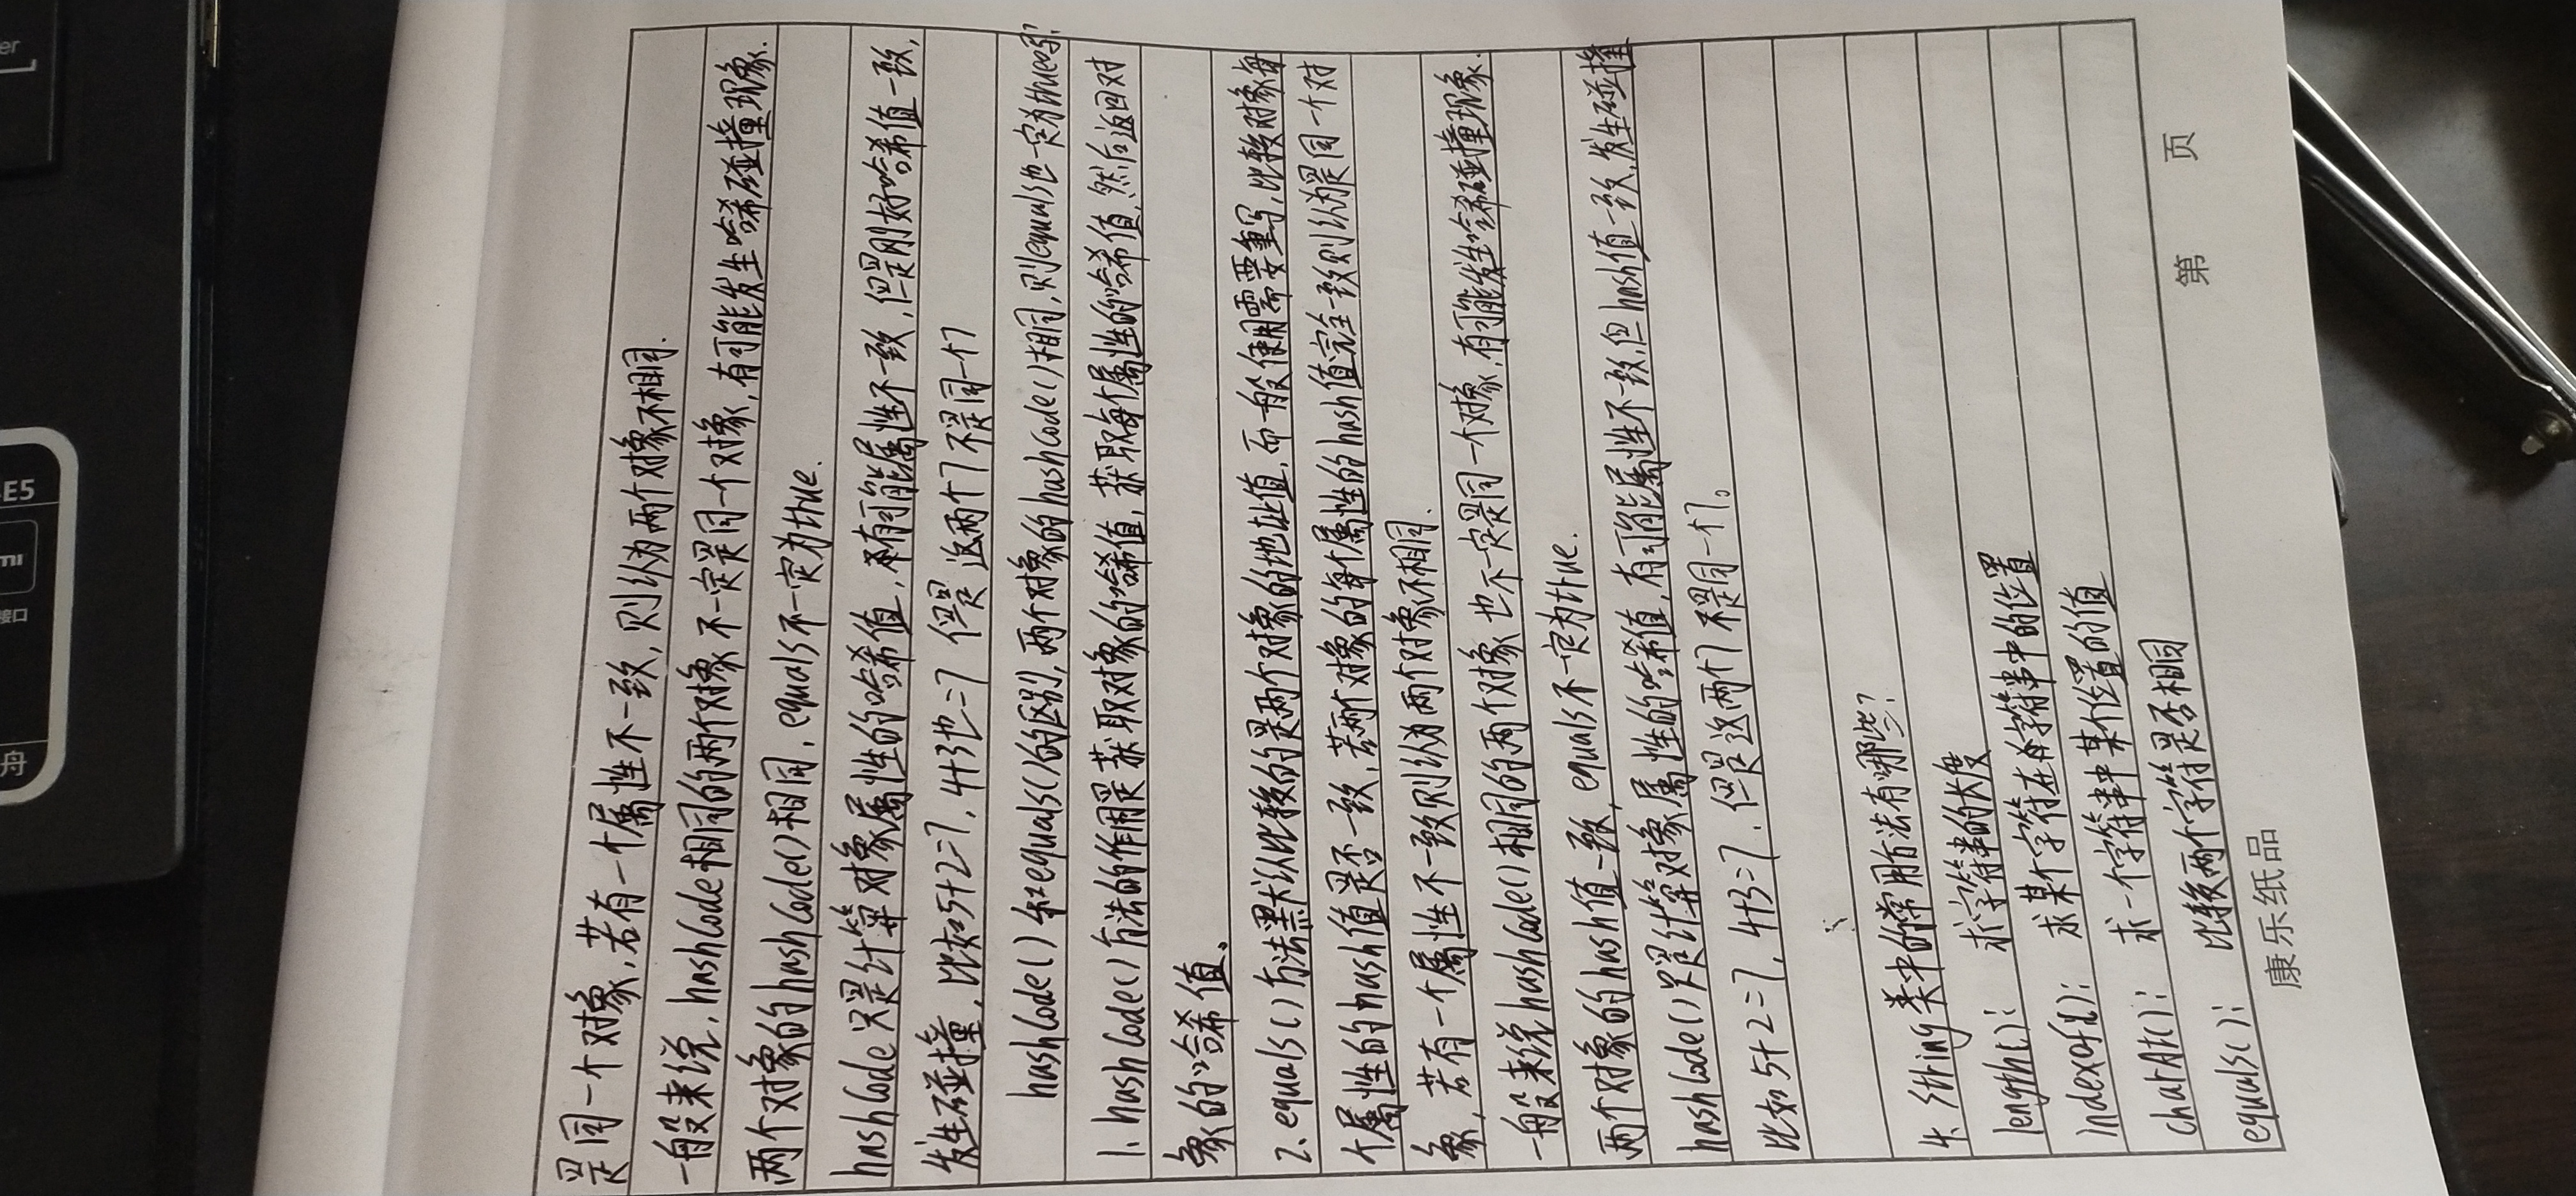 是同一个对象,若有一个属性不一致,则认为两个对象不相同.
一般来说,hashCode相同的两个对象,不一定是同一个对象,有可能发生哈希碰撞现象.
两个对象的hashCode()相同,equals不一定为true.
hashCode只是计算对象属性的哈希值,有可能属性不一致,但是刚好哈希值一致,
发生碰撞,比如5+2=7,4+3也=7 但是这两个7不是同一个7
hashCode()和equals()的区别,两个对象的hashCode()相同,则equals也一定为true吗?
1.hashCode()方法的作用是获取对象的哈希值,获取每个属性的哈希值,然后返回对
象的哈希值。
2.equals()方法默认比较的是两个对象的地址值,而一般使用需要重写,比较对象每
个属性的hash值是否一致,若两个对象的每个属性的hash值完全一致则认为是同一个对
象,若有一个属性不一致则认为两个对象不相同.
一般来说hashCode()相同的两个对象也不一定是同一个对象,有可能发生哈希碰撞现象.
两个对象的hash值一致,equals不一定为true.
hashCode()只是计算对象属性的哈希值,有可能属性不一致,但hash值一致,发生碰撞
比如5+2=7,4+3=7,但是这两个7不是同一个7。
4、String类中的常用方法有哪些?
length(): 求字符串的长度
indexOf(): 求某个字符在字符串中的位置
charAt(): 求一个字符串中某个位置的值
equals(): 比较两个字符是否相同
康乐纸品 第 页
er
E5
mi
接口
舟